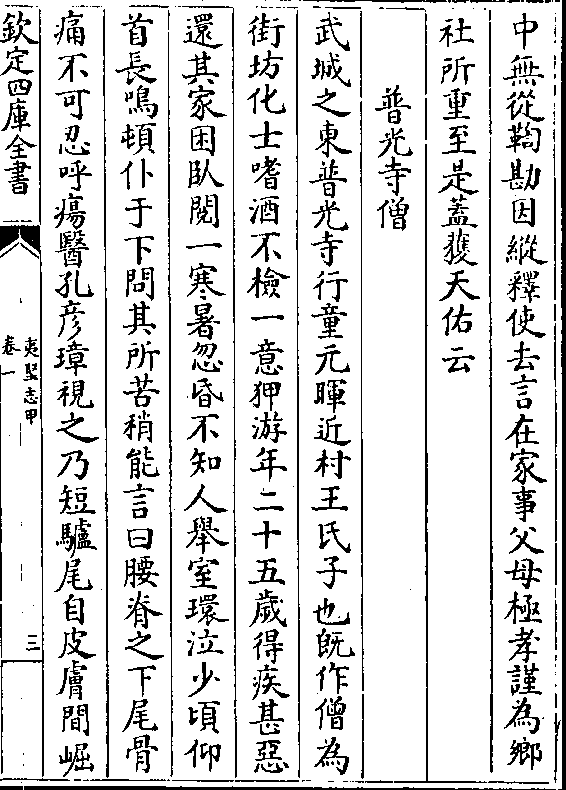 中無從鞫勘因縱釋使去言在家事父母極孝謹為鄉
社所重至是蓋獲天佑云
普光寺僧
武城之東普光寺行童元暉近村王氏子也既作僧為
街坊化士嗜酒不檢一意狎游年二十五歲得疾甚惡
還其家困臥閱一寒暑忽昏不知人舉室環泣少頃仰
首長鳴頓仆于下問其所苦稍能言曰腰脊之下尾骨
痛不可忍呼瘍醫孔彦璋視之乃短驢尾自皮膚間崛
欽定四庫全書
夷堅志甲
卷一
三